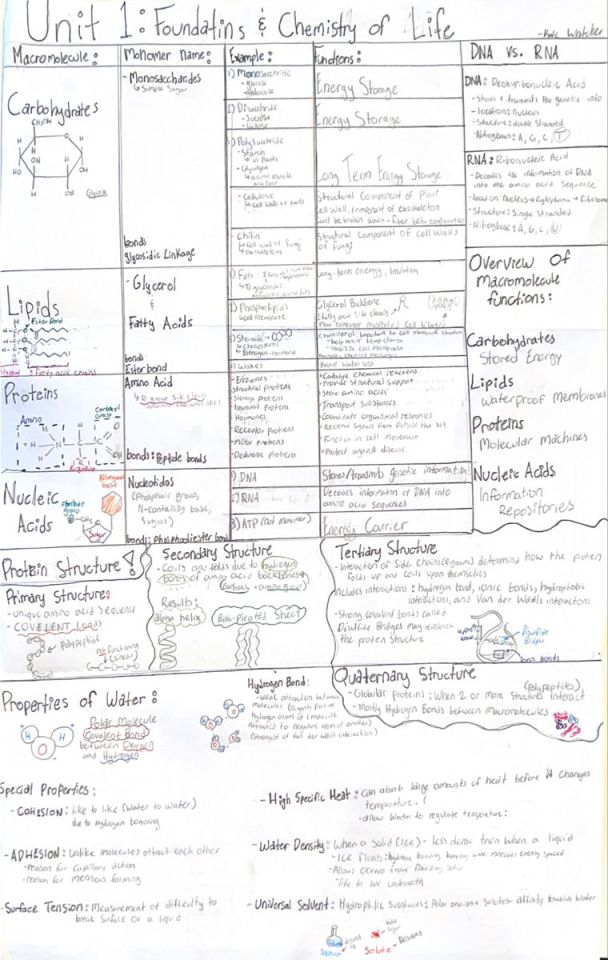 Unit 1: Foundatins & Chemistry of Life
Macromolecule:
Monomer Name:
Example:
Functions:
DNA vs. RNA
Carbohydrates
CH₂OH
Glucose
- Monosaccharides
↳ Simple Sugar
bonds
glycosidic Linkage
1) Monosaccharide
- glucose
Energy Storage
2) Disaccharide
- Sucrose
- lactose
Energy Storage
3) Polysaccharide
- Starch
↳ in Plants
- Glycogen
Long Term Energy Storage
- Cellulose
↳ Cell wall of plants
Structural Component of Plant
Cell Wall,
- Chitin
↳ Cell wall of fungi
↳ Exoskeletons
Structural Component of Cell Walls
of Fungi
DNA: Deoxyribonucleic Acid
- Stores & transmits the genetic info
- location: nucleus
- Structure: double Stranded
- Nitrogbase: A, G, C, T
RNA: Ribonucleic Acid
- Decodes the information of DNA
into the amino acid sequence
- Structure: Single Stranded
- Nitrogbase: A, G, C, U
Lipids
Ester Bond
- Glycerol
&
Fatty Acids
bonds
Ester bond
1) Fats
Long-term energy, Insulation
2) Phospholipid
↳ Cell membrane
Glycerol Backbone
3) Steroids
↳ Cholesterol
↳ Estrogen - hormone
4) Waxes
Overview of
Macromolecule
functions:
Carbohydrates
Stored Energy
Lipids
Waterproof Membranes
Proteins
Molecular Machines
Nucleic Acids
Information
Repositories
Proteins
Amino
Carboxyl
Group
R-group
Amino Acid
bonds: Peptide bonds
- Enzymes
- Structural proteins
- Storage proteins
- Transport Proteins
- Hormones
- Receptor proteins
- Motor proteins
- Defensive proteins
- Catalyze Chemical reactions
- Provide Structural Support
- Store amino acids
- Transport Substances
- Coordinate organismal responses
- Function in Cell movement
- Protect against disease
Nucleic
Acids
Nitrogen
base
Phosphate
group
Sugar
Nucleotides
(Phosphate group,
N-containing base,
Sugars)
bonds: Phosphodiester bond
1) DNA
Stores/transmits genetic information
2) RNA
Decodes information of DNA into
amino acid sequences
3) ATP (not monomer)
Energy Carrier
Protein Structure!
Primary Structure:
- unique amino acid Sequence
- COVELENT bonds
Polypeptide
no functioning
(linear)
Secondary Structure
- Coils and folds due to hydrogen
bonds of amino acid backbones
Results:
alpha helix
Beta-pleated Sheet
Tertiary Structure
- Interaction of Side chains (R groups) determing how the protein
Folds up and Coils upon themselves
Includes interactions: hydrogen bond, ionic bonds, hydrophobic
interactions, and Van der Walls interactions
- Strong Covalent bonds called
Disulfide Bridges may reinforce
the protein structure
Disulfide
Bridge
Ionic bonds
Quaternary Structure
(Polypeptides)
- Globular proteins: When 2 or more Structures interact
- Mostly Hydrogen Bonds between macromolecules
Properties of Water:
H
H
O
Polar Molecule
Covalent Bond
between Oxygen
and Hydrogen
Hydrogen Bond:
- Weak attraction between
molecules (Slightly positive
hydrogen atoms of 1 molecule
attracted to negative atom of another)
(Strongest of Van der Walls interaction)
Special Properties:
- COHESION: like to like (Water to water)
due to hydrogen bonding
- ADHESION: Unlike molecules attract each other
- reason for Capillary action
- reason for meniscus forming
- Surface Tension: Measurement of difficulty to
break Surface of a liquid
- High Specific Heat: Can absorb large amounts of heat before it changes
temperature.
- allow Water to regulate temperature
- Water Density: When a Solid (Ice) - less dense then when a liquid
- Ice floats:
- Allows Oceans from freezing Solid
- life to live underneath
- Universal Solvent: Hydrophilic Substances: Polar and ionic Solutes
Solvent
Solute